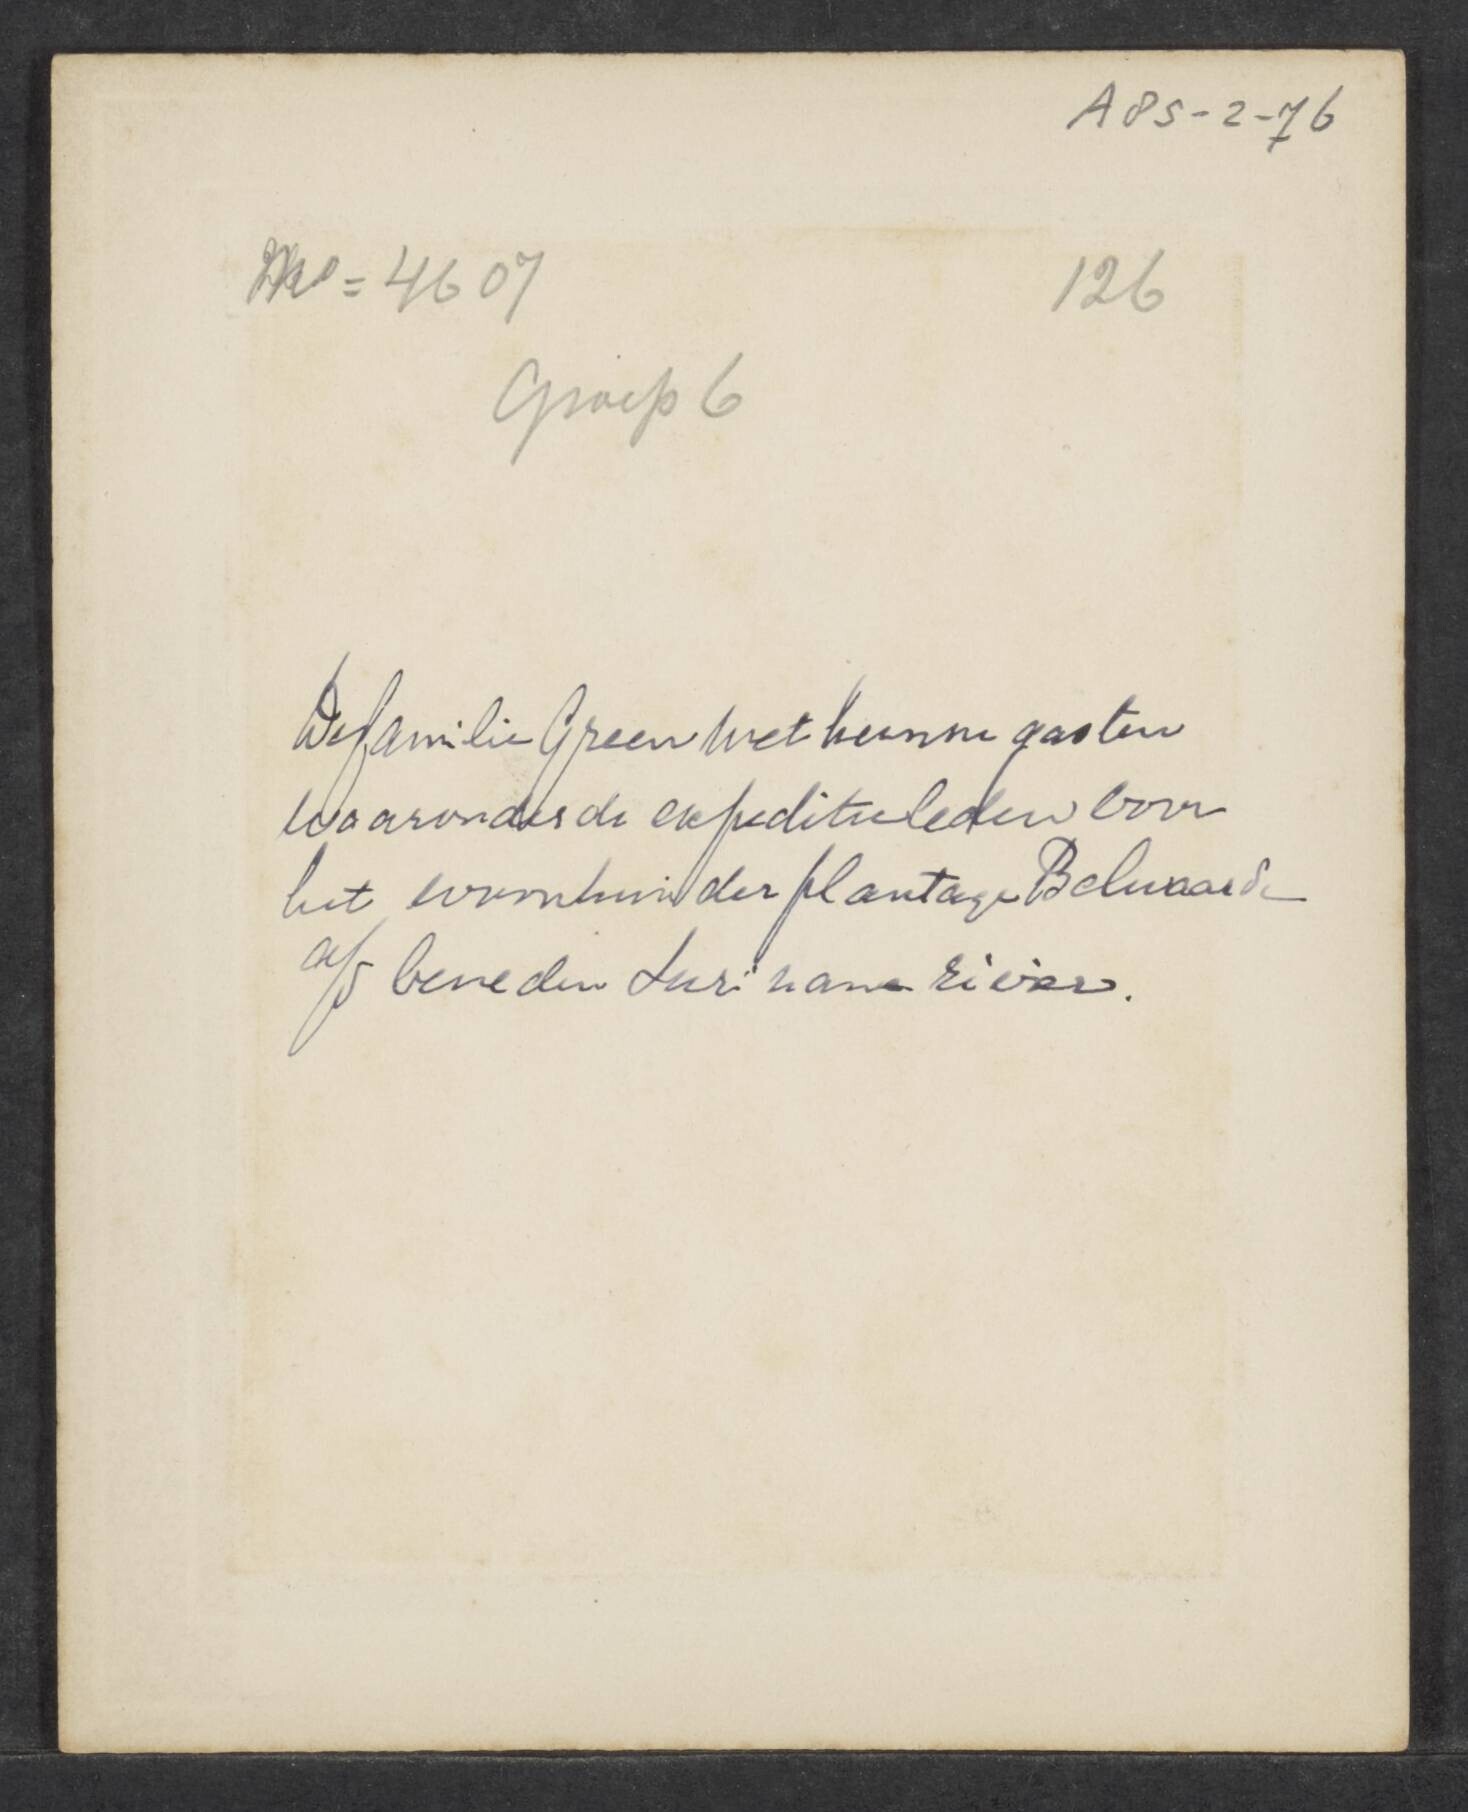 A85-2-76
= 4607 126
Groep 6
De familie Green met hunne gasten
waaronder de expeditieleden voor
het woonhuis der plantage Belwaarde
a/d beneden Suriname rivier.